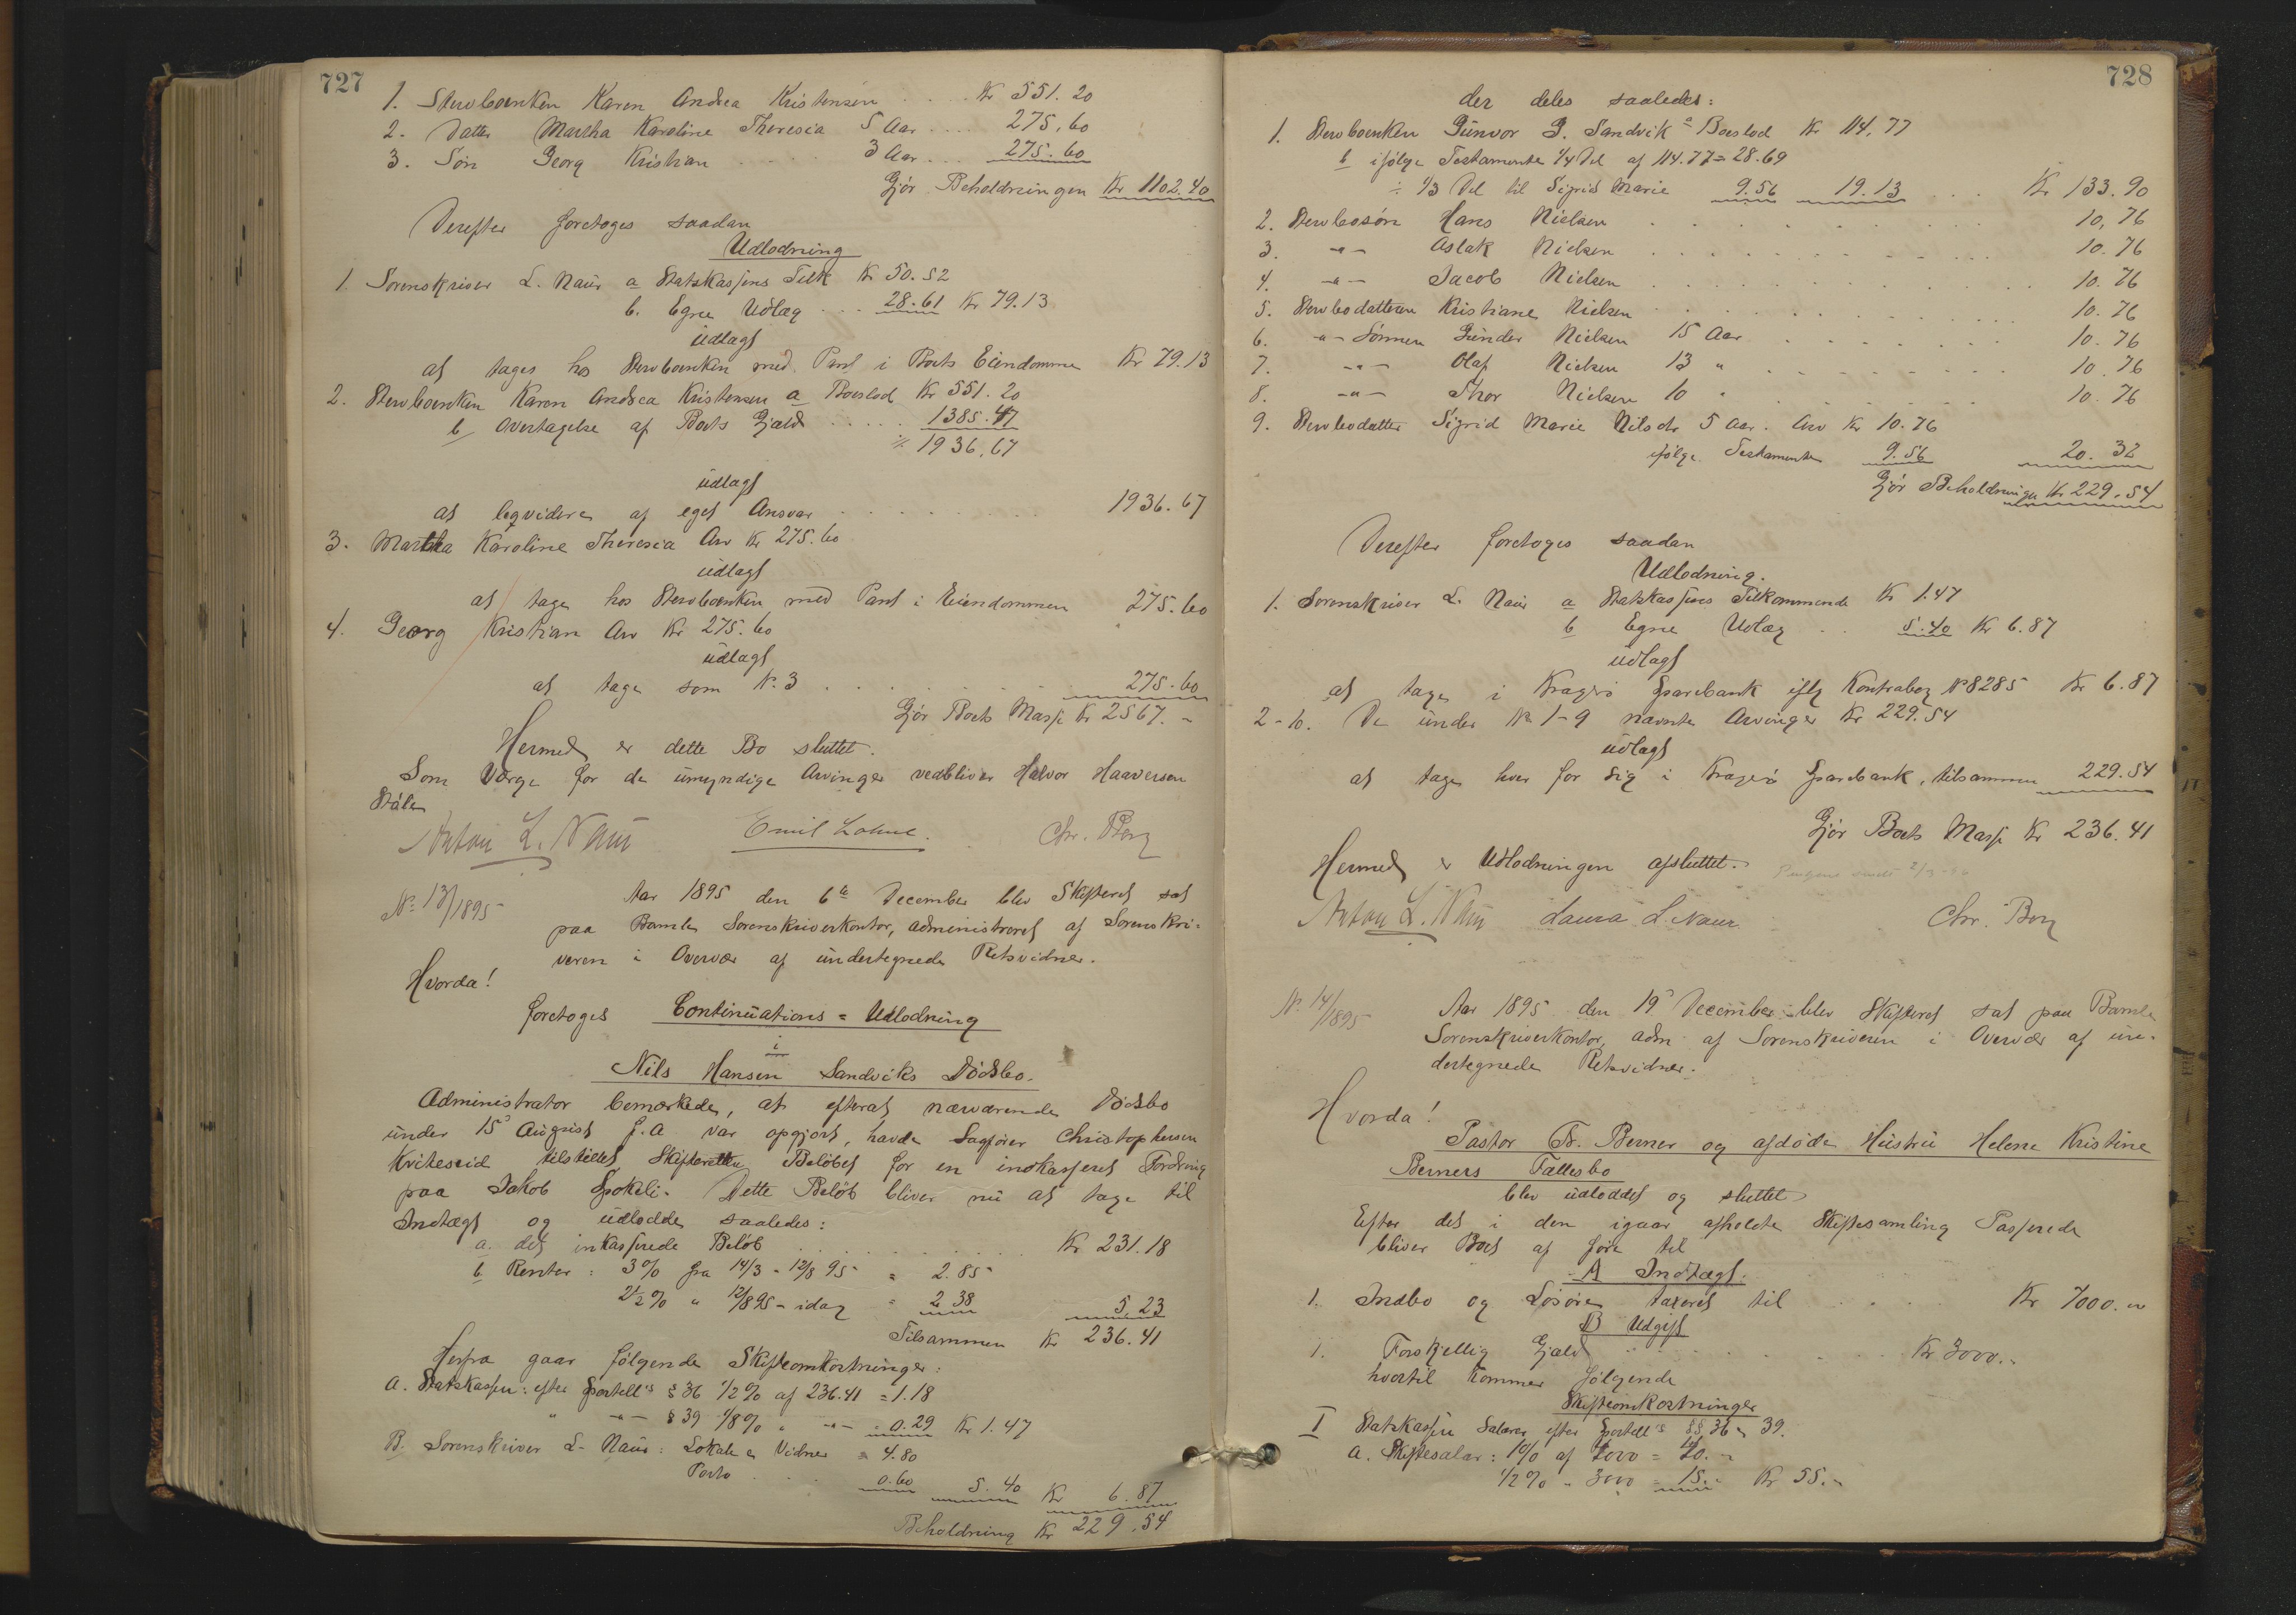 727
1. Stervboenken Karen Andrea Kristensen .... Kr 551.20
2. Datter Martha Karoline Theresia 5 Aar .... 275.60
3. Søn Georg Kristian ..... 3 Aar .... 275.60
Gjør Beholdningen Kr 1102.40
Derefter foretoges saadan
Udlodning
1. Sorenskriver L. Naur a Statskassens Tilk Kr 50.52
b. Egne Udlæg ... 28.61 Kr 79.13
udlagt
at tages hos Stervboenken med Pant i Boets Eiendomme Kr 79.13
2. Stervboenken Karen Andrea Kristensen a Boeslod Kr 551.20
b Overtagelse af Boets Gjæld ..... 1385.47
1936.67
udlagt
at liqvidere af eget Ansvar ......... 1936.67
3. Martha Karoline Theresia Arv Kr 275.60
udlagt
at tage hos Stervboenken med Pant i Eiendommen 275.60
4. Georg Kristian Arv Kr 275.60
udlagt
at tage som N. 3 ........ 275.60
Gjør Boets Masse Kr 2567.-
Hermed er dette Bo sluttet.
Som Værge for de umyndige Arvinger vedbliver Halvor Haaversen
Stålen
Anton L. Naur Emil Lohne. Chr. Berg
No 13/1895
Aar 1895 den 6te December blev Skifteret sat
paa Bamle Sorenskriverkontor, administreret af Sorenskri-
veren i Overvær af undertegnede Retsvidner.
Hvorda!
foretoges Continuations = Udlodning
i
Nils Hansen Sandviks Dødsbo.
Administrator bemærkede, at efterat nærværende Dødsbo
under 15d August f.A var opgjort, havde Sagfører Christophersen
Kviteseid tilstillet Skifteretten Beløbet for en indkasseret Fordring
paa Jakob Spokeli. Dette Beløb bliver nu at tage til
Indtægt og udlodde saaledes:
a. det inkasserede Beløb .............. Kr 231.18
b Renter: 3% fra 14/3 - 12/8 95 = 2.85
2½% " 12/8 95 - idag = 2.38 5.23
Tilsammen Kr 236.41
Herfra gaar følgende Skifteomkostninger:
A. Statskassen: efter Sportell's § 36 1/2% af 236.41 = 1.18
" -"- § 39 1/8% " -"- = 0.29 Kr 1.47
B. Sorenskriver L. Naur: Lokale & Vidner = 4.80
Porto .... 0.60 5.40 Kr 6.87
Beholdning Kr 229.54
728
der deles saaledes:
1. Stervboenken Gunvor G. Sandvik a Boeslod Kr 114.77
b ifølge Testamente 1/4 Del af 114.77 = 28.69
÷ 1/3 Del til Sigrid Marie 9.56 19.13 ... Kr 133.90
2. Stervbosøn Hans Nielsen .......... 10.76
3. -"- Aslak Nielsen .......... 10.76
4. -"- Jacob Nielsen .......... 10.76
5. Stervbodatteren Kristiane Nielsen .......... 10.76
6. -"- Sønnen Gunder Nielsen 15 Aar ........ 10.76
7. -"- Olaf Nielsen 13 " ........ 10.76
8. -"- Thor Nielsen 10 " ........ 10.76
9. Stervbodatter Sigrid Marie Nilsdr 5 Aar. Arv Kr 10.76
ifølge Testamente 9.56 20.32
Gjør Beholdningen Kr 229.54
Derefter foretoges saadan
Udlodning.
1. Sorenskriver L. Naur a Statskassens Tilkommende Kr 1.47
b Egne Udlæg .. 5.40 Kr 6.87
udlagt
at tage i Kragerø Sparebank iflg Kontrabog No 8285 Kr 6.87
2-10. De under No 1-9 nævnte Arvinger Kr 229.54
udlagt
at tage hver for sig i Kragerø Sparebank, tilsammen 229.54
Gjør Boets Masse Kr 236.41
Hermed er Udlodningen afsluttet.
Anton L. Naur Laura L. Naur Chr. Berg
No 14/1895
Aar 1895 den 19d December blev Skifteret sat paa Bamle
Sorenskriverkontor, adm. af Sorenskriveren i Overvær af un-
dertegnede Retsvidner.
Hvorda!
Pastor Fr. Berner og afdøde Hustru Helene Kristine
Berners Fællesbo
blev udloddet og sluttet
Efter det i den igaar afholdte Skiftesamling Passerede
bliver Boet at føre til
A Indtægt.
1. Indbo og Løsøre taxeret til ..... Kr 7000.-
B Udgift
1. Forskjellig Gjæld .......... Kr 3000.-
hvortil kommer følgende
Skifteomkostninger
I Statskassen Salærer efter Sportell's §§ 36 & 39.
a. Skiftesalær: 1% af 4000 = 40.-
1/2% " 3000 = 15.- Kr 55.-